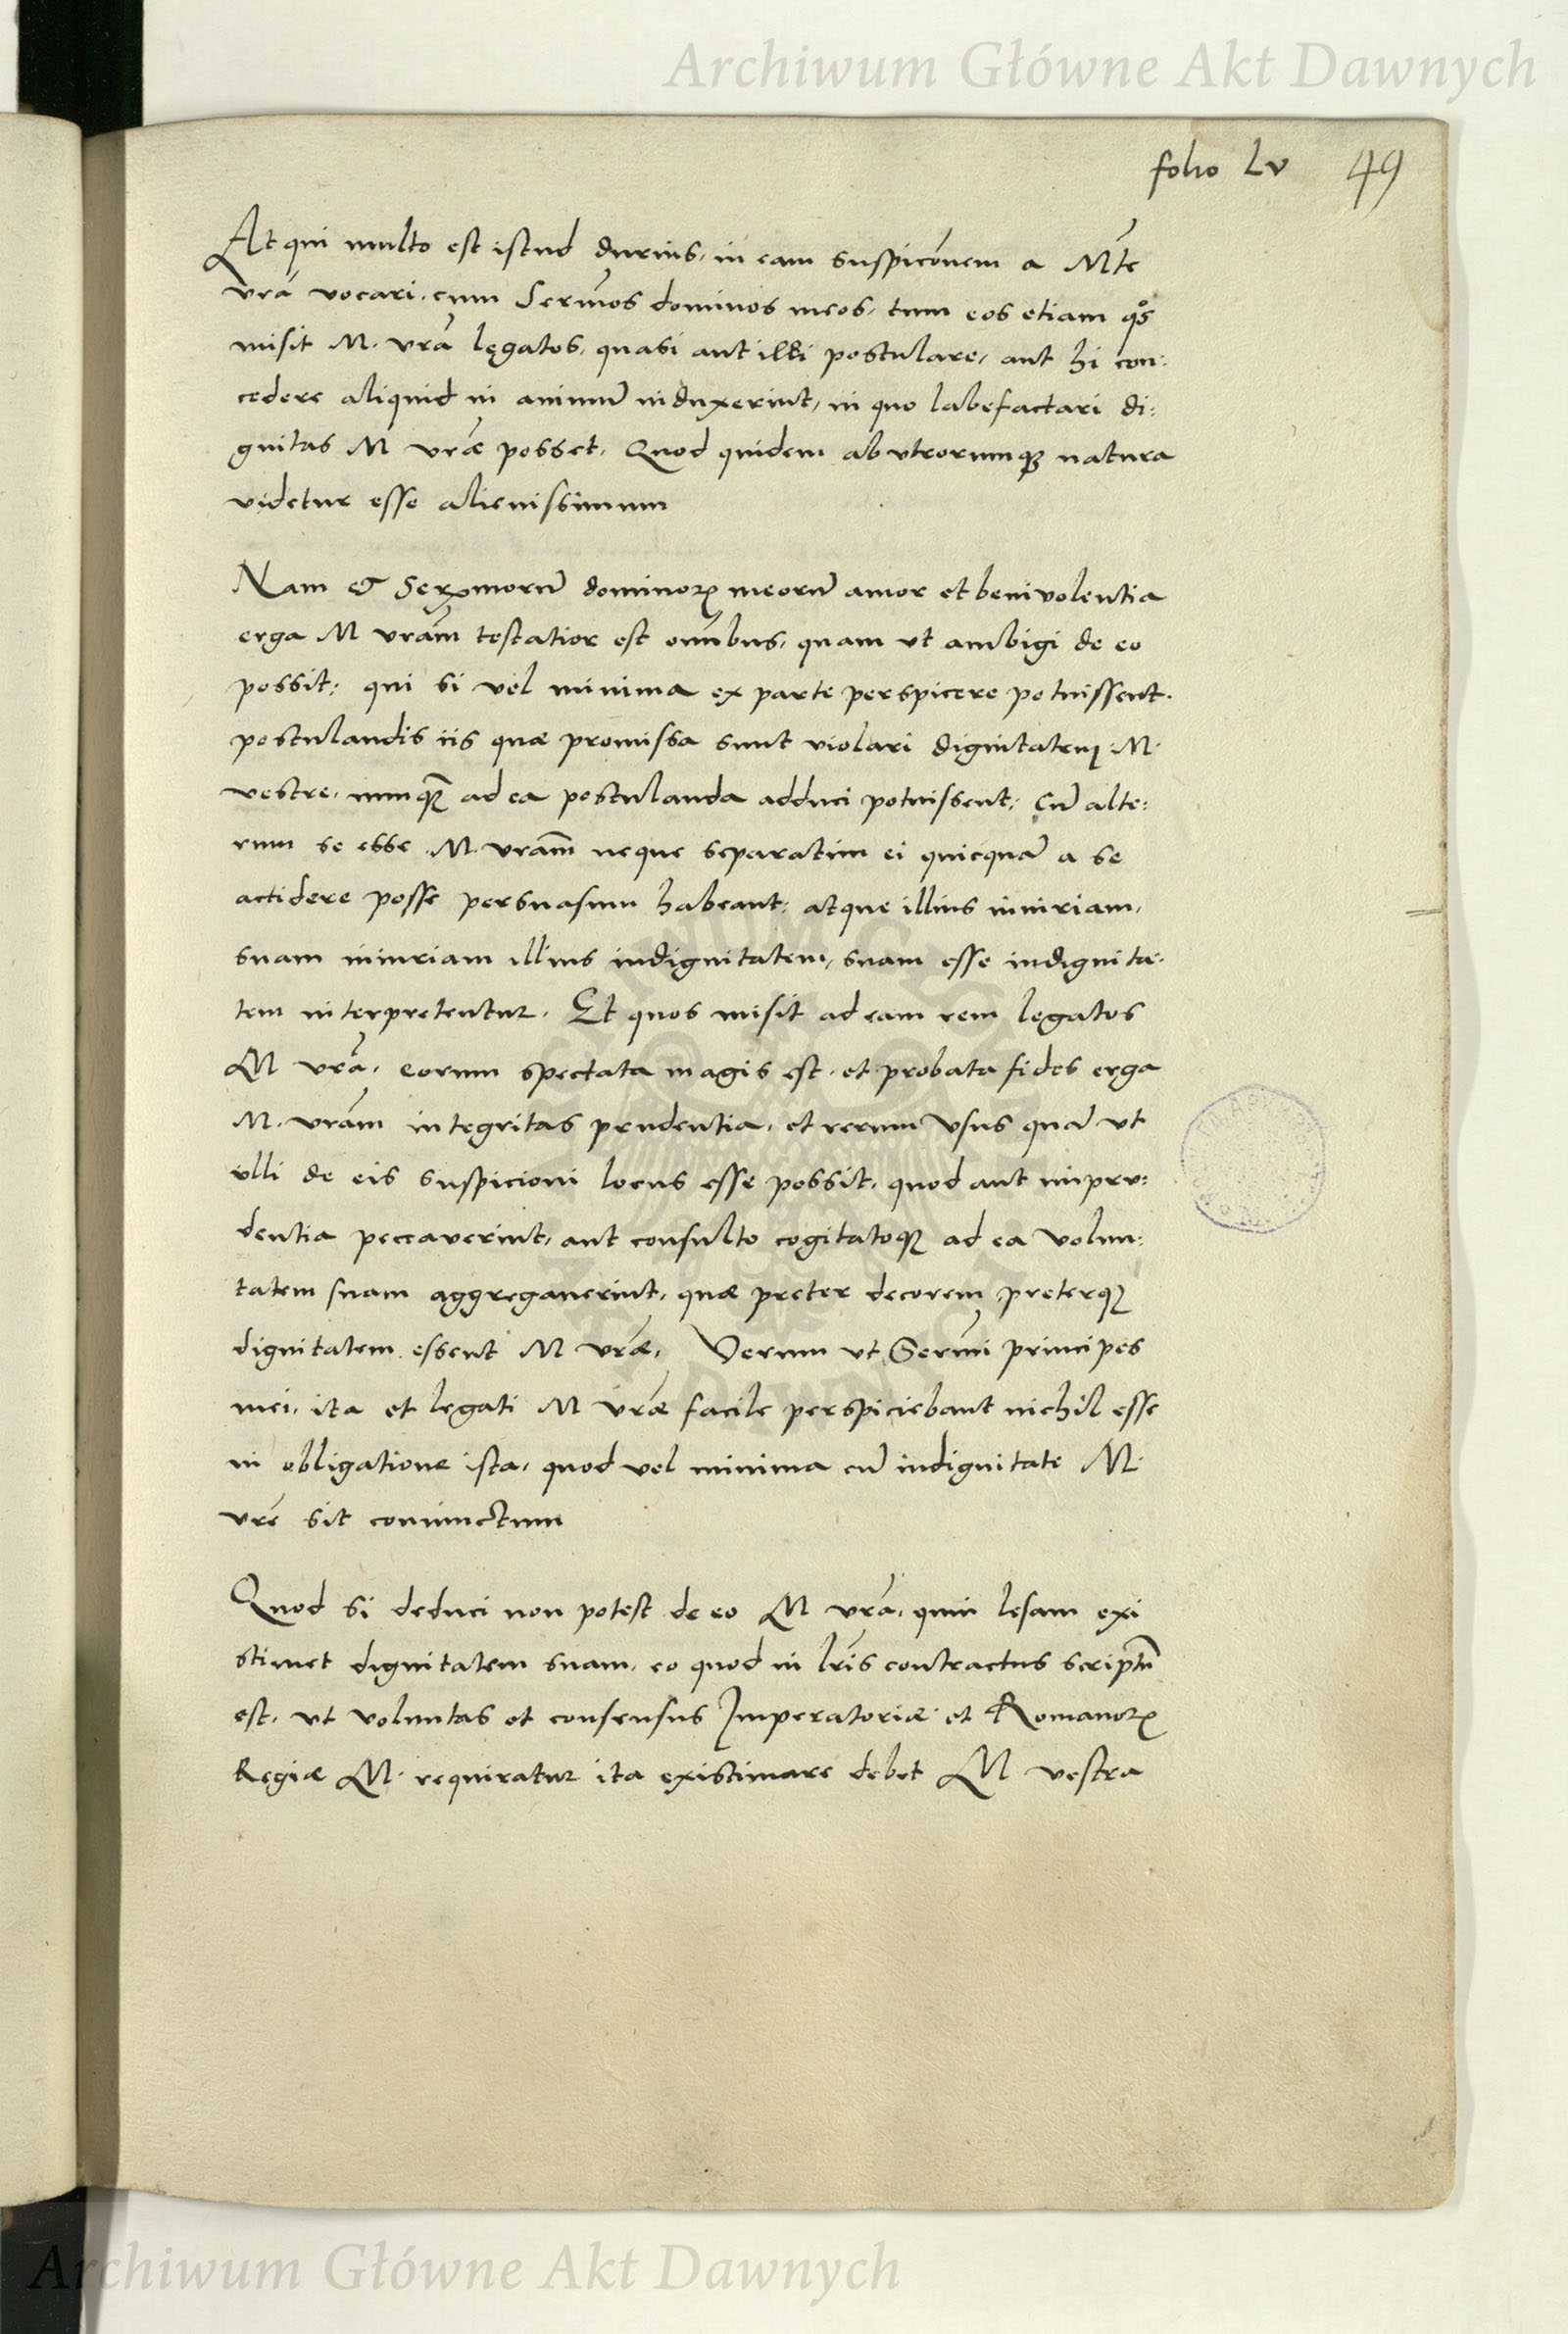 Archiwum Główne Akt Dawnych
folio Lv 49
Atqui multo est istud durius, in eam suspicōnem a Mte
vrā vocari, cum Sermōs dominos meos, tum eos etiam qōs
misit M. vrā lęgatos, quasi aut illi postulare, aut hi con:
cedere aliquid in animū induxerint, in quo labefactari di:
gnitas M vrāe posset, Quod quidem ab vtrorumqȝ natura
videtur esse alienissimum
Nam et Sermorū dominoꝝ meorū amor et benivolentia
erga M vrām testatior est omībus, quam ut ambigi de eo
possit; qui si vel minima ex parte perspicere potuissent.
postulandis iis quæ promissa sunt violari dignitatem M.
vestre, nunqȝ ad ea postulanda adduci potuissent; Cū alte:
rum se esse M. vram̄ neque separatim ei quicquā a se
accidere posse persuasum habeant: atque illius iniuriam,
suam iniuriam illius indignitatem, suam esse indignita:
tem interpretentur. Et quos misit ad eam rem legatos
M vrā, eorum spectata magis est, et probata fides erga
M. vrām integritas prudentia, et rerum vsus quā vt
ulli de eis suspicioni locus esse possit, quod aut impru:
dentia peccaverint, aut consulto cogitatoqȝ ad ea volun:
tatem suam aggregauerint, quæ preter decorem preterqȝ
dignitatem essent M vrāe, Verum vt Sermī principes
mei, ita et legati M vrāe facile perspiciebant nichil esse
in obligatione ista, quod vel minima cū indignitate M.
vrē sit coniunctum
Quod si deduci non potest de eo M vrā, quin lesam exi
stimet dignitatem suam, eo quod in lrīs contractus scriptū
est, vt voluntas et consensus Imperatoriæ et Romanoꝝ
Regiæ M. requiratur ita existimare debet M vestra
Archiwum Główne Akt Dawnych